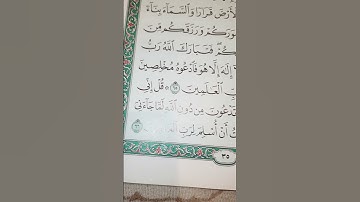 ٱلْأَرْضَ قَرَارًا وَٱلسَّمَآءَ بِنَآءً
وَرَكُمْ وَرَزَقَكُم مِّنَ
كُمْ فَتَبَارَكَ ٱللَّهُ رَبُّ
إِلَٰهَ إِلَّا هُوَ فَٱدْعُوهُ مُخْلِصِينَ
ٱلْعَٰلَمِينَ ٦٥ ۞ قُلْ إِنِّي
تَدْعُونَ مِن دُونِ ٱللَّهِ لَمَّا جَآءَنِيَ
أَنْ أُسْلِمَ لِرَبِّ
٣٥